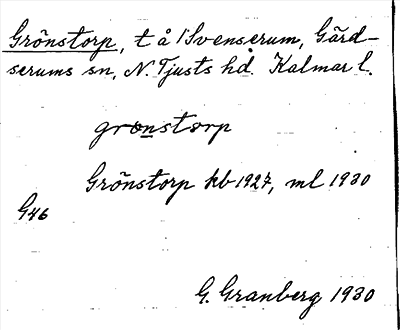 Grönstorp, t å 1 Svenserum, Gärd-
serums sn, N. Tjusts hd. Kalmar l.
gronstorp
Grönstorp kb 1927, ml 1930
G46
G. Granberg 1930